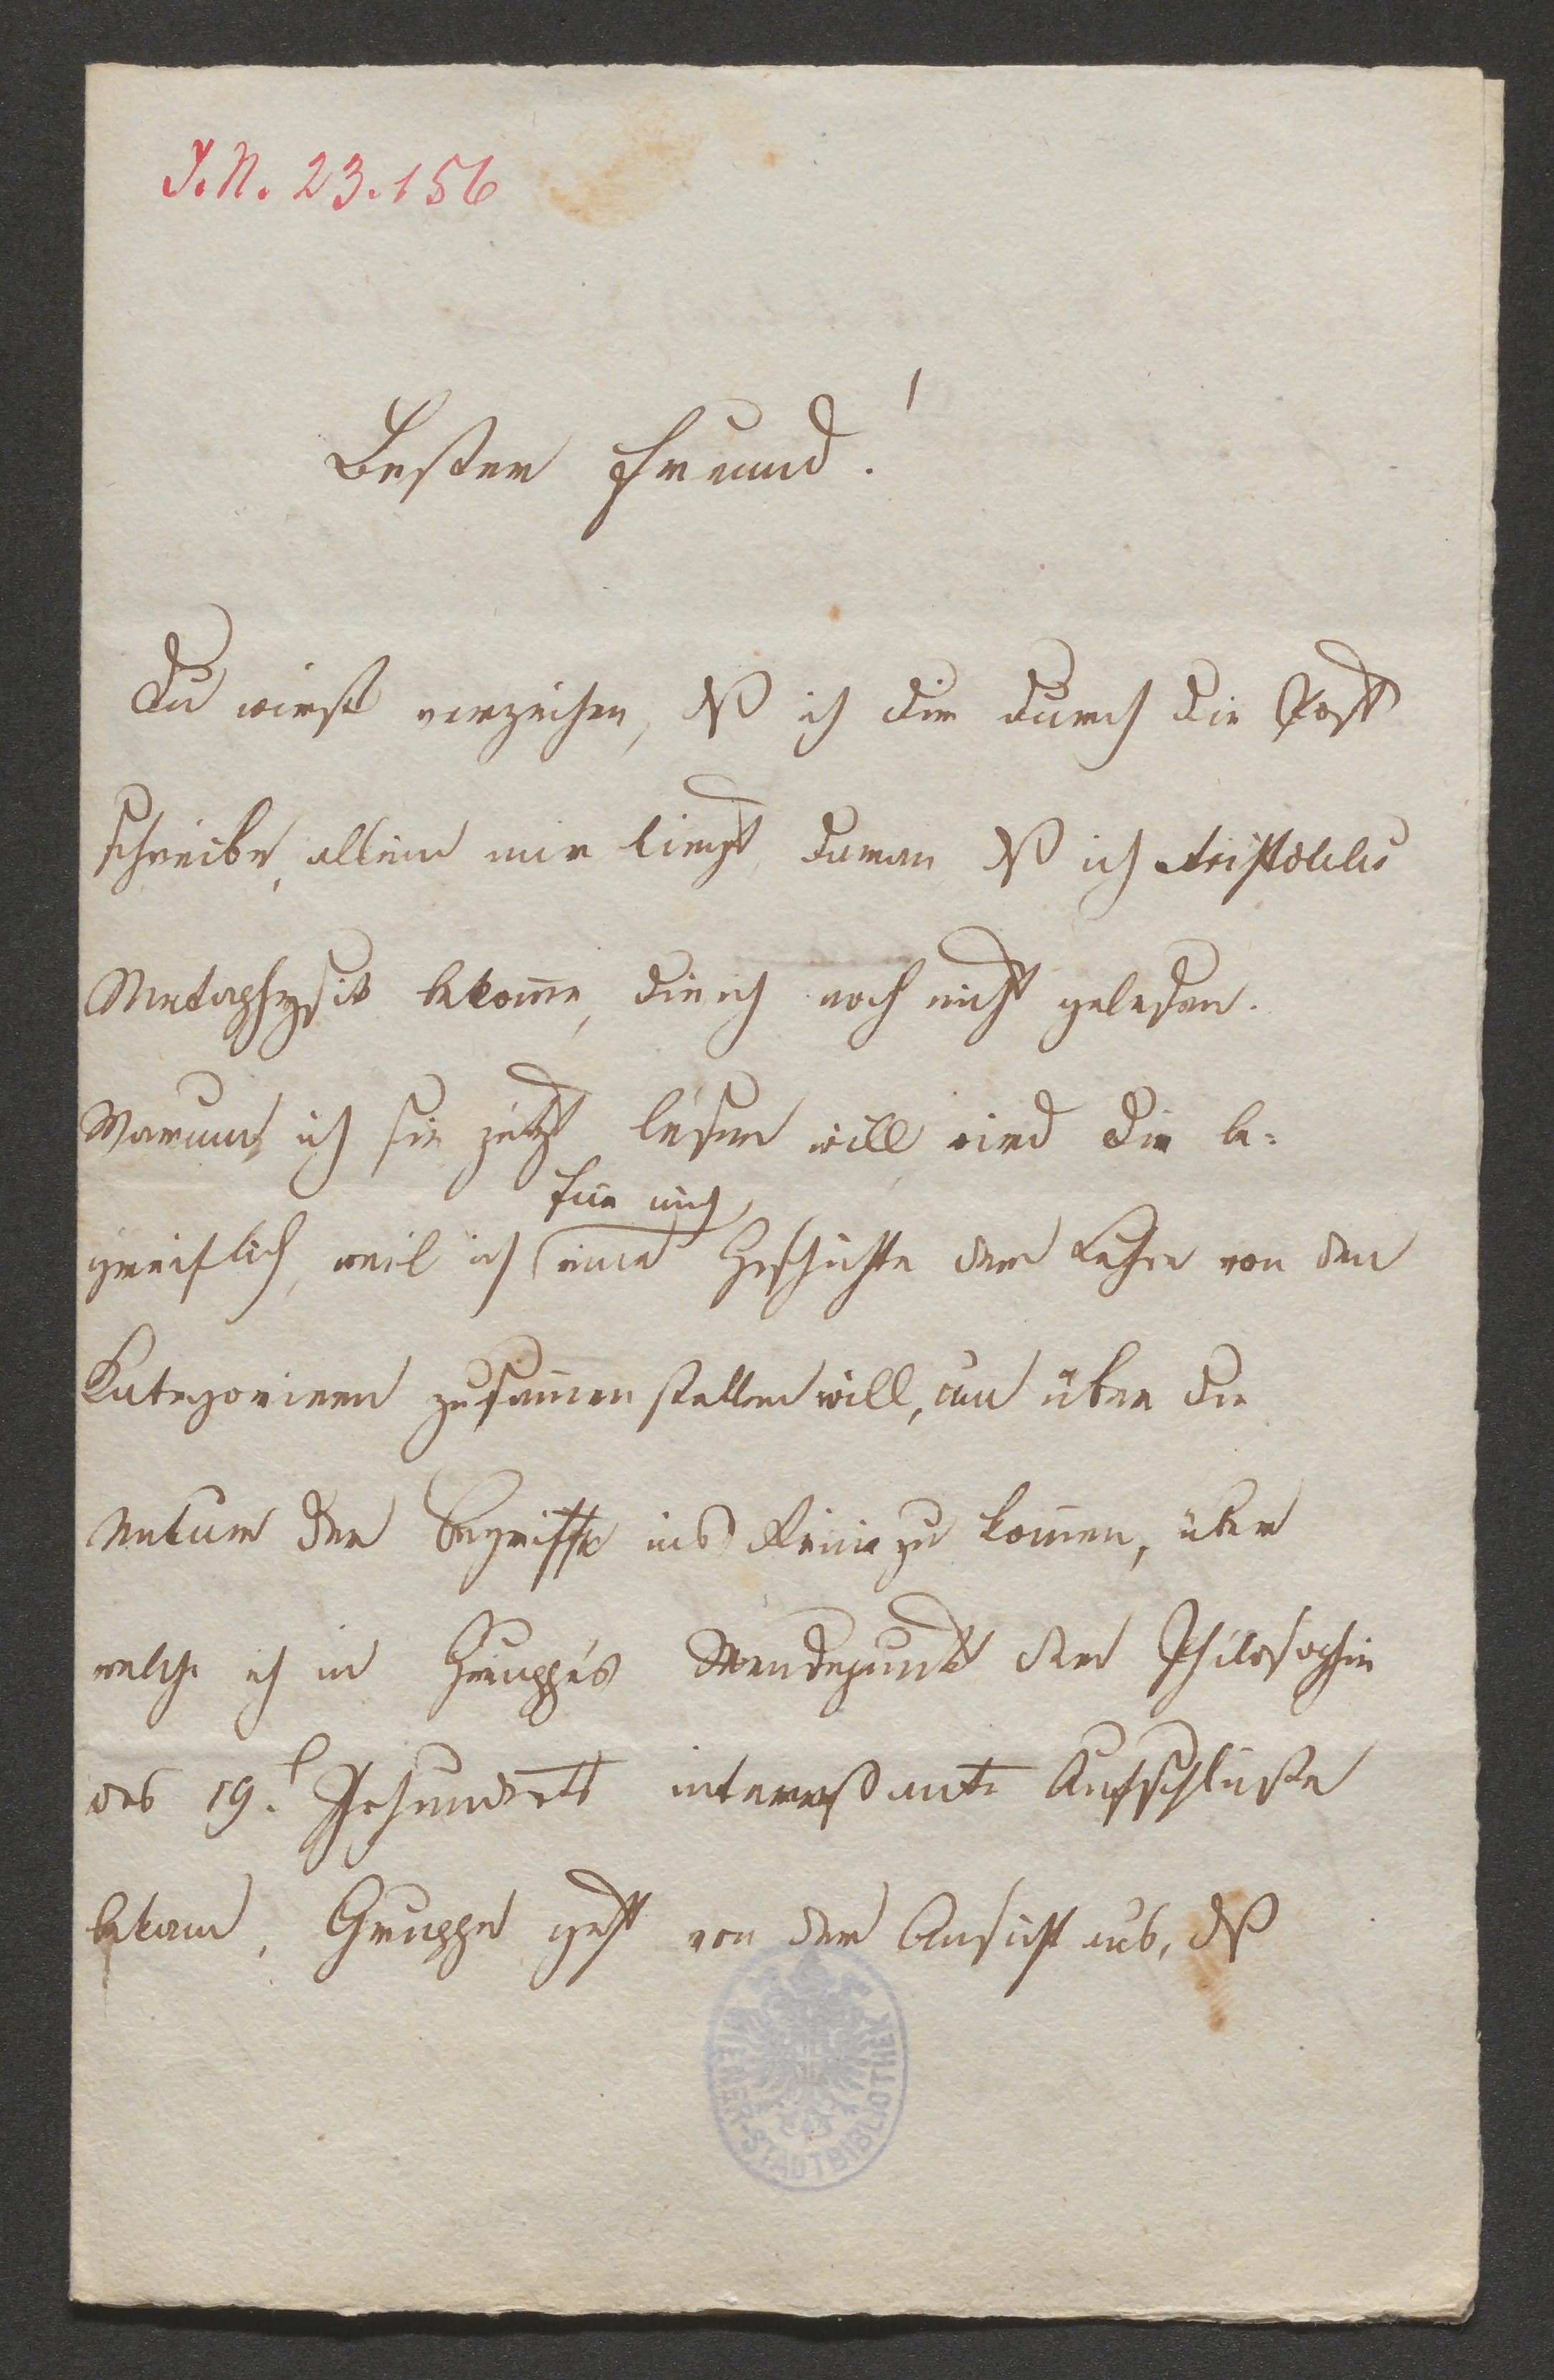 J. N. 23.156
Bester Freund!
Du wirst verzeihen, dß ich dir durch die Post
schreibe, allein mir liegt daran dß ich Aristoteles
Metaphysik bekom̅e, die ich noch nicht gelesen.
Warum ich sie jetzt lesen will wird dir be-
für mich
greiflich, weil ich eine Geschichte der Lehre von den
Kategorieen zusam̅enstellen will, um über die
Natur der Begriffe ins Reine zu kom̅en, über
welche ich in Gruppe's Wendepunkt der Philosophie
des 19. Jahrhunderts interessante Aufschlüße
bekam. Gruppe geht von der Ansicht aus, dß
WIENER-STADTBIBLIOTHEK